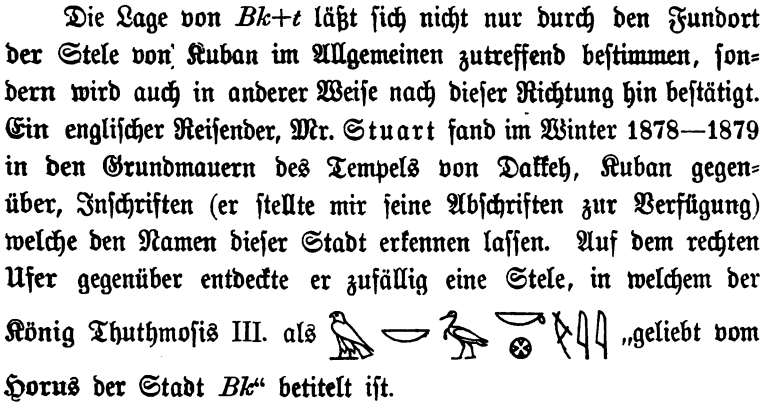 Die Lage von Bk+t läßt sich nicht nur durch den Fundort
der Stele von Kuban im Allgemeinen zutreffend bestimmen, son=
dern wird auch in anderer Weise nach dieser Richtung hin bestätigt.
Ein englischer Reisender, Mr. Stuart fand im Winter 1878—1879
in den Grundmauern des Tempels von Dakkeh, Kuban gegen=
über, Inschriften (er stellte mir seine Abschriften zur Verfügung)
welche den Namen dieser Stadt erkennen lassen. Auf dem rechten
Ufer gegenüber entdeckte er zufällig eine Stele, in welchem der
König Thuthmosis III. als 𓅃𓎟𓅡𓎡𓊖𓌸𓇋𓇋 „geliebt vom
Horus der Stadt Bk“ betitelt ist.